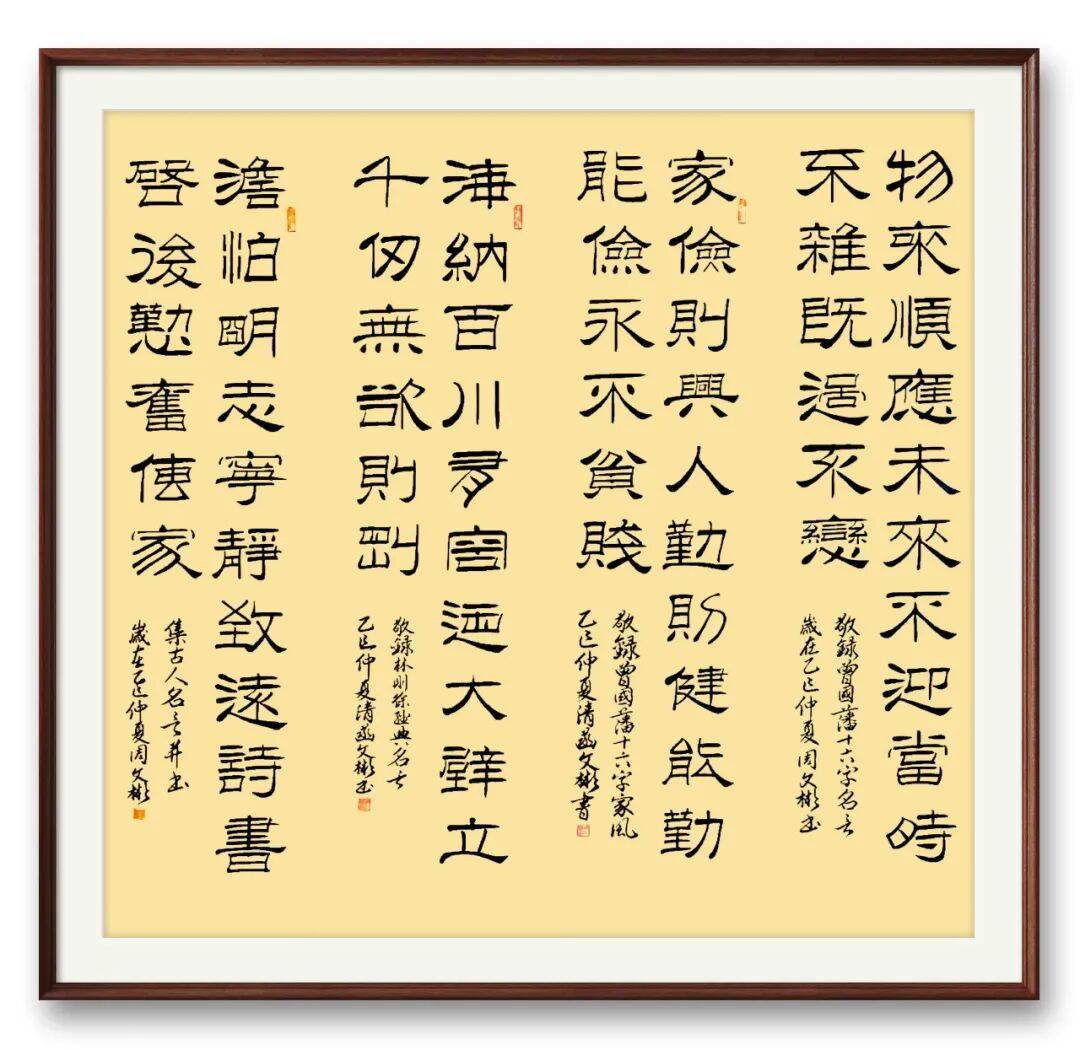 物來順應未來不迎當時
不雜既過不戀
敬録曾國藩十六字名言
歲在乙巳仲夏周文彬书
家儉則興人勤則健能勤
能儉永不貧賤
敬録曾國藩十六字家風
乙巳仲夏清文彬書
海納百川有容迺大壁立
千仞無欲則剛
敬録林则徐經典名言
乙巳仲夏清文彬书
澹泊明志寧靜致遠詩書
啓後勤奮傳家
集古人名言并书
歲在乙巳仲夏周文彬